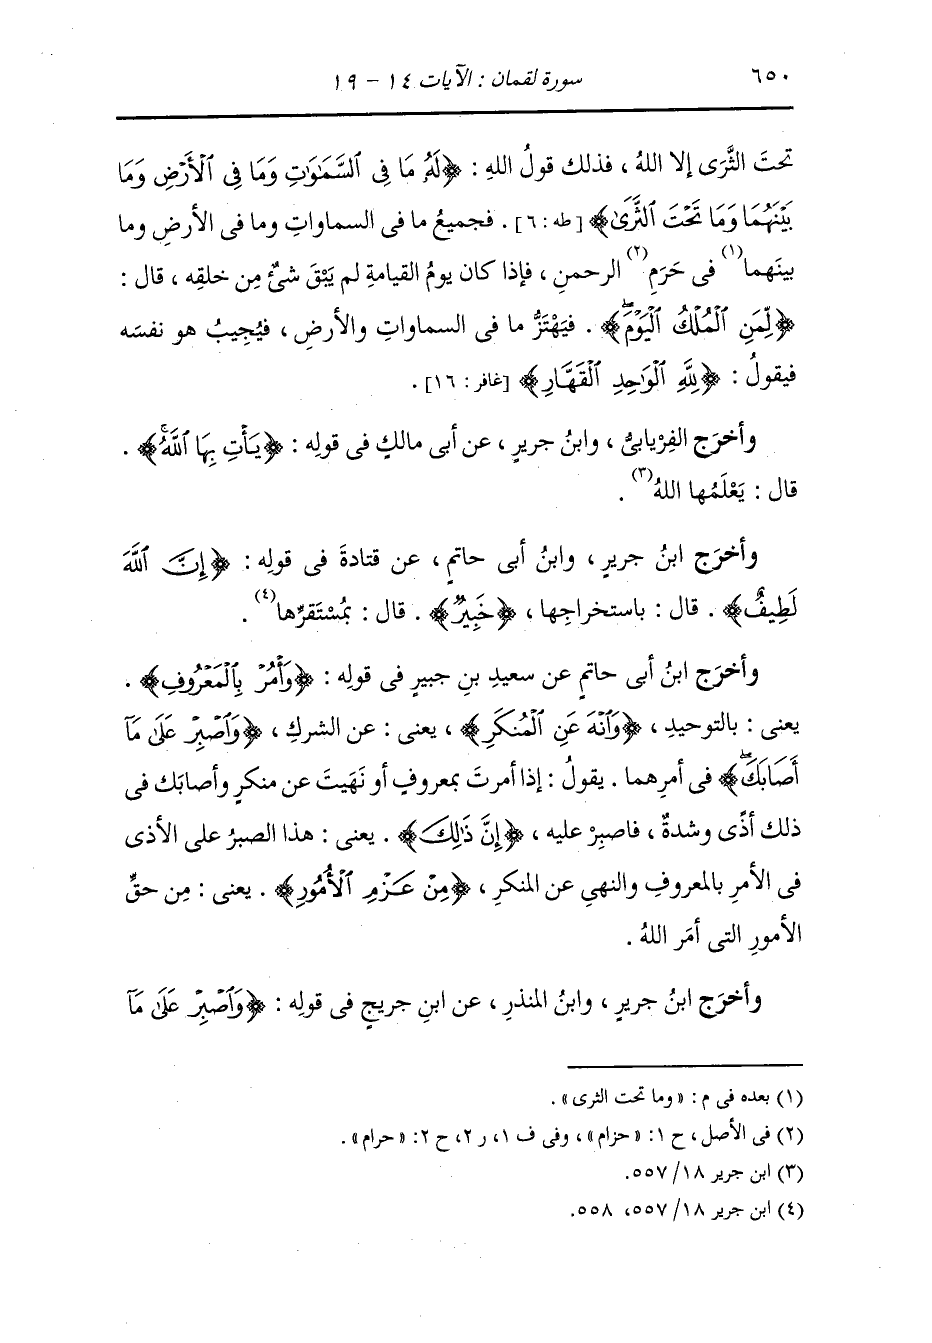 ٦٥٠
سورة لقمان : الآيات ١٤ - ١٩
تحتَ الثَّرَى إلا اللهُ ، فذلك قولُ اللهِ : ﴿لَهُ مَا فِي ٱلسَّمَٰوَٰتِ وَمَا فِي ٱلْأَرْضِ وَمَا
بَيْنَهُمَا وَمَا تَحْتَ ٱلثَّرَىٰ﴾ [طه : ٦] . فجميعُ ما فى السماواتِ وما فى الأرضِ وما
بينَهما(١) فى حَرَمِ(٢) الرحمنِ ، فإذا كان يومُ القيامةِ لم يَبْقَ شىْءٌ مِن خلقِه ، قال :
﴿لِّمَنِ ٱلْمُلْكُ ٱلْيَوْمَۖ﴾ . فيَهْتَزُّ ما فى السماواتِ والأرضِ ، فيُجِيبُ هو نفسَه
فيقولُ : ﴿لِلَّهِ ٱلْوَٰحِدِ ٱلْقَهَّارِ﴾ [غافر : ١٦] .
وأخرَج الفِرْيابىُّ ، وابنُ جريرٍ ، عن أبى مالكٍ فى قولِه : ﴿يَأْتِ بِهَا ٱللَّهُۚ﴾ .
قال : يَعْلَمُها اللهُ(٣) .
وأخرَج ابنُ جريرٍ ، وابنُ أبى حاتمٍ ، عن قتادةَ فى قولِه : ﴿إِنَّ ٱللَّهَ
لَطِيفٌ﴾ . قال : باستخراجِها ، ﴿خَبِيرٌ﴾ . قال : بمُسْتَقرِّها(٤) .
وأخرَج ابنُ أبى حاتمٍ عن سعيدِ بنِ جبيرٍ فى قولِه : ﴿وَأْمُرْ بِٱلْمَعْرُوفِ﴾ .
يعنى : بالتوحيدِ ، ﴿وَٱنْهَ عَنِ ٱلْمُنكَرِ﴾ ، يعنى : عن الشركِ ، ﴿وَٱصْبِرْ عَلَىٰ مَآ
أَصَابَكَۖ﴾ فى أمرِهما . يقولُ : إذا أمرتَ بمعروفٍ أو نَهَيتَ عن منكرٍ وأصابَك فى
ذلك أذًى وشدةٌ ، فاصبِرْ عليه ، ﴿إِنَّ ذَٰلِكَ﴾ . يعنى : هذا الصبرُ على الأذى
فى الأمرِ بالمعروفِ والنهىِ عن المنكرِ ، ﴿مِنْ عَزْمِ ٱلْأُمُورِ﴾ . يعنى : مِن حقِّ
الأمورِ التى أمَر اللهُ .
وأخرَج ابنُ جريرٍ ، وابنُ المنذرِ ، عن ابنِ جريجٍ فى قولِه : ﴿وَٱصْبِرْ عَلَىٰ مَآ
(١) بعده فى م : «وما تحت الثرى» .
(٢) فى الأصل ، ح ١ : «حزام» ، وفى ف ١، ر ٢، ح ٢: «حرام» .
(٣) ابن جرير ١٨/ ٥٥٧.
(٤) ابن جرير ١٨/ ٥٥٧، ٥٥٨.